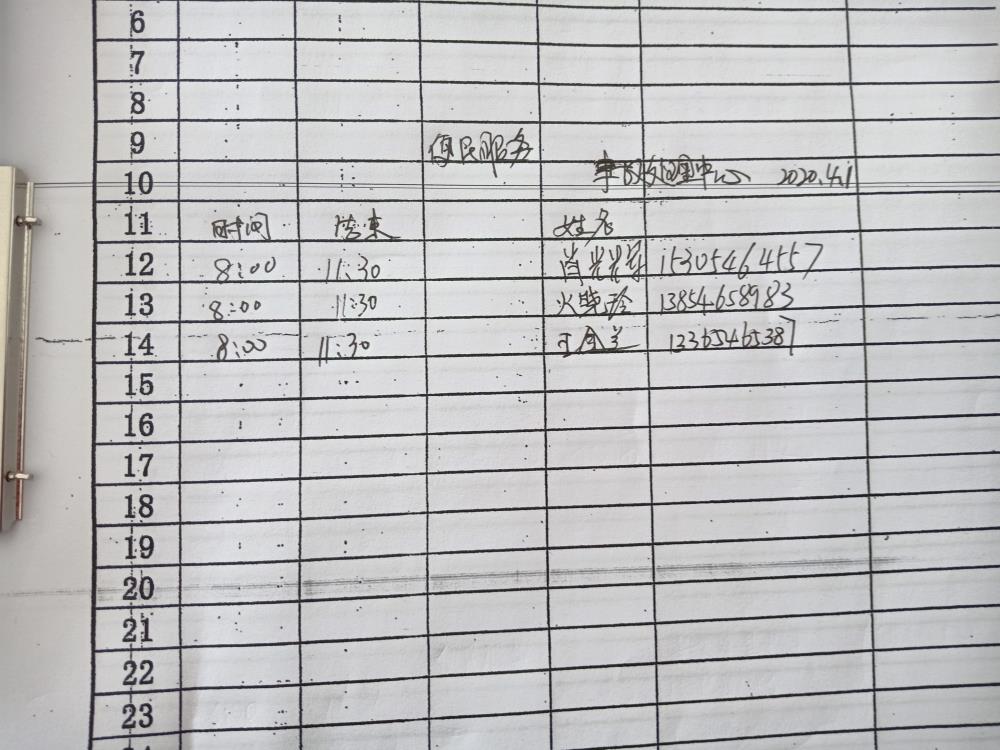 6
7
8
9 便民服务
10 事故处理中心 2020.4.1
11 时间 结束 姓名
12 8:00 11:30 肖 15305464557
13 8:00 11:30 火 13854658983
14 8:00 11:30 王金兰 13365465387
15
16
17
18
19
20
21
22
23